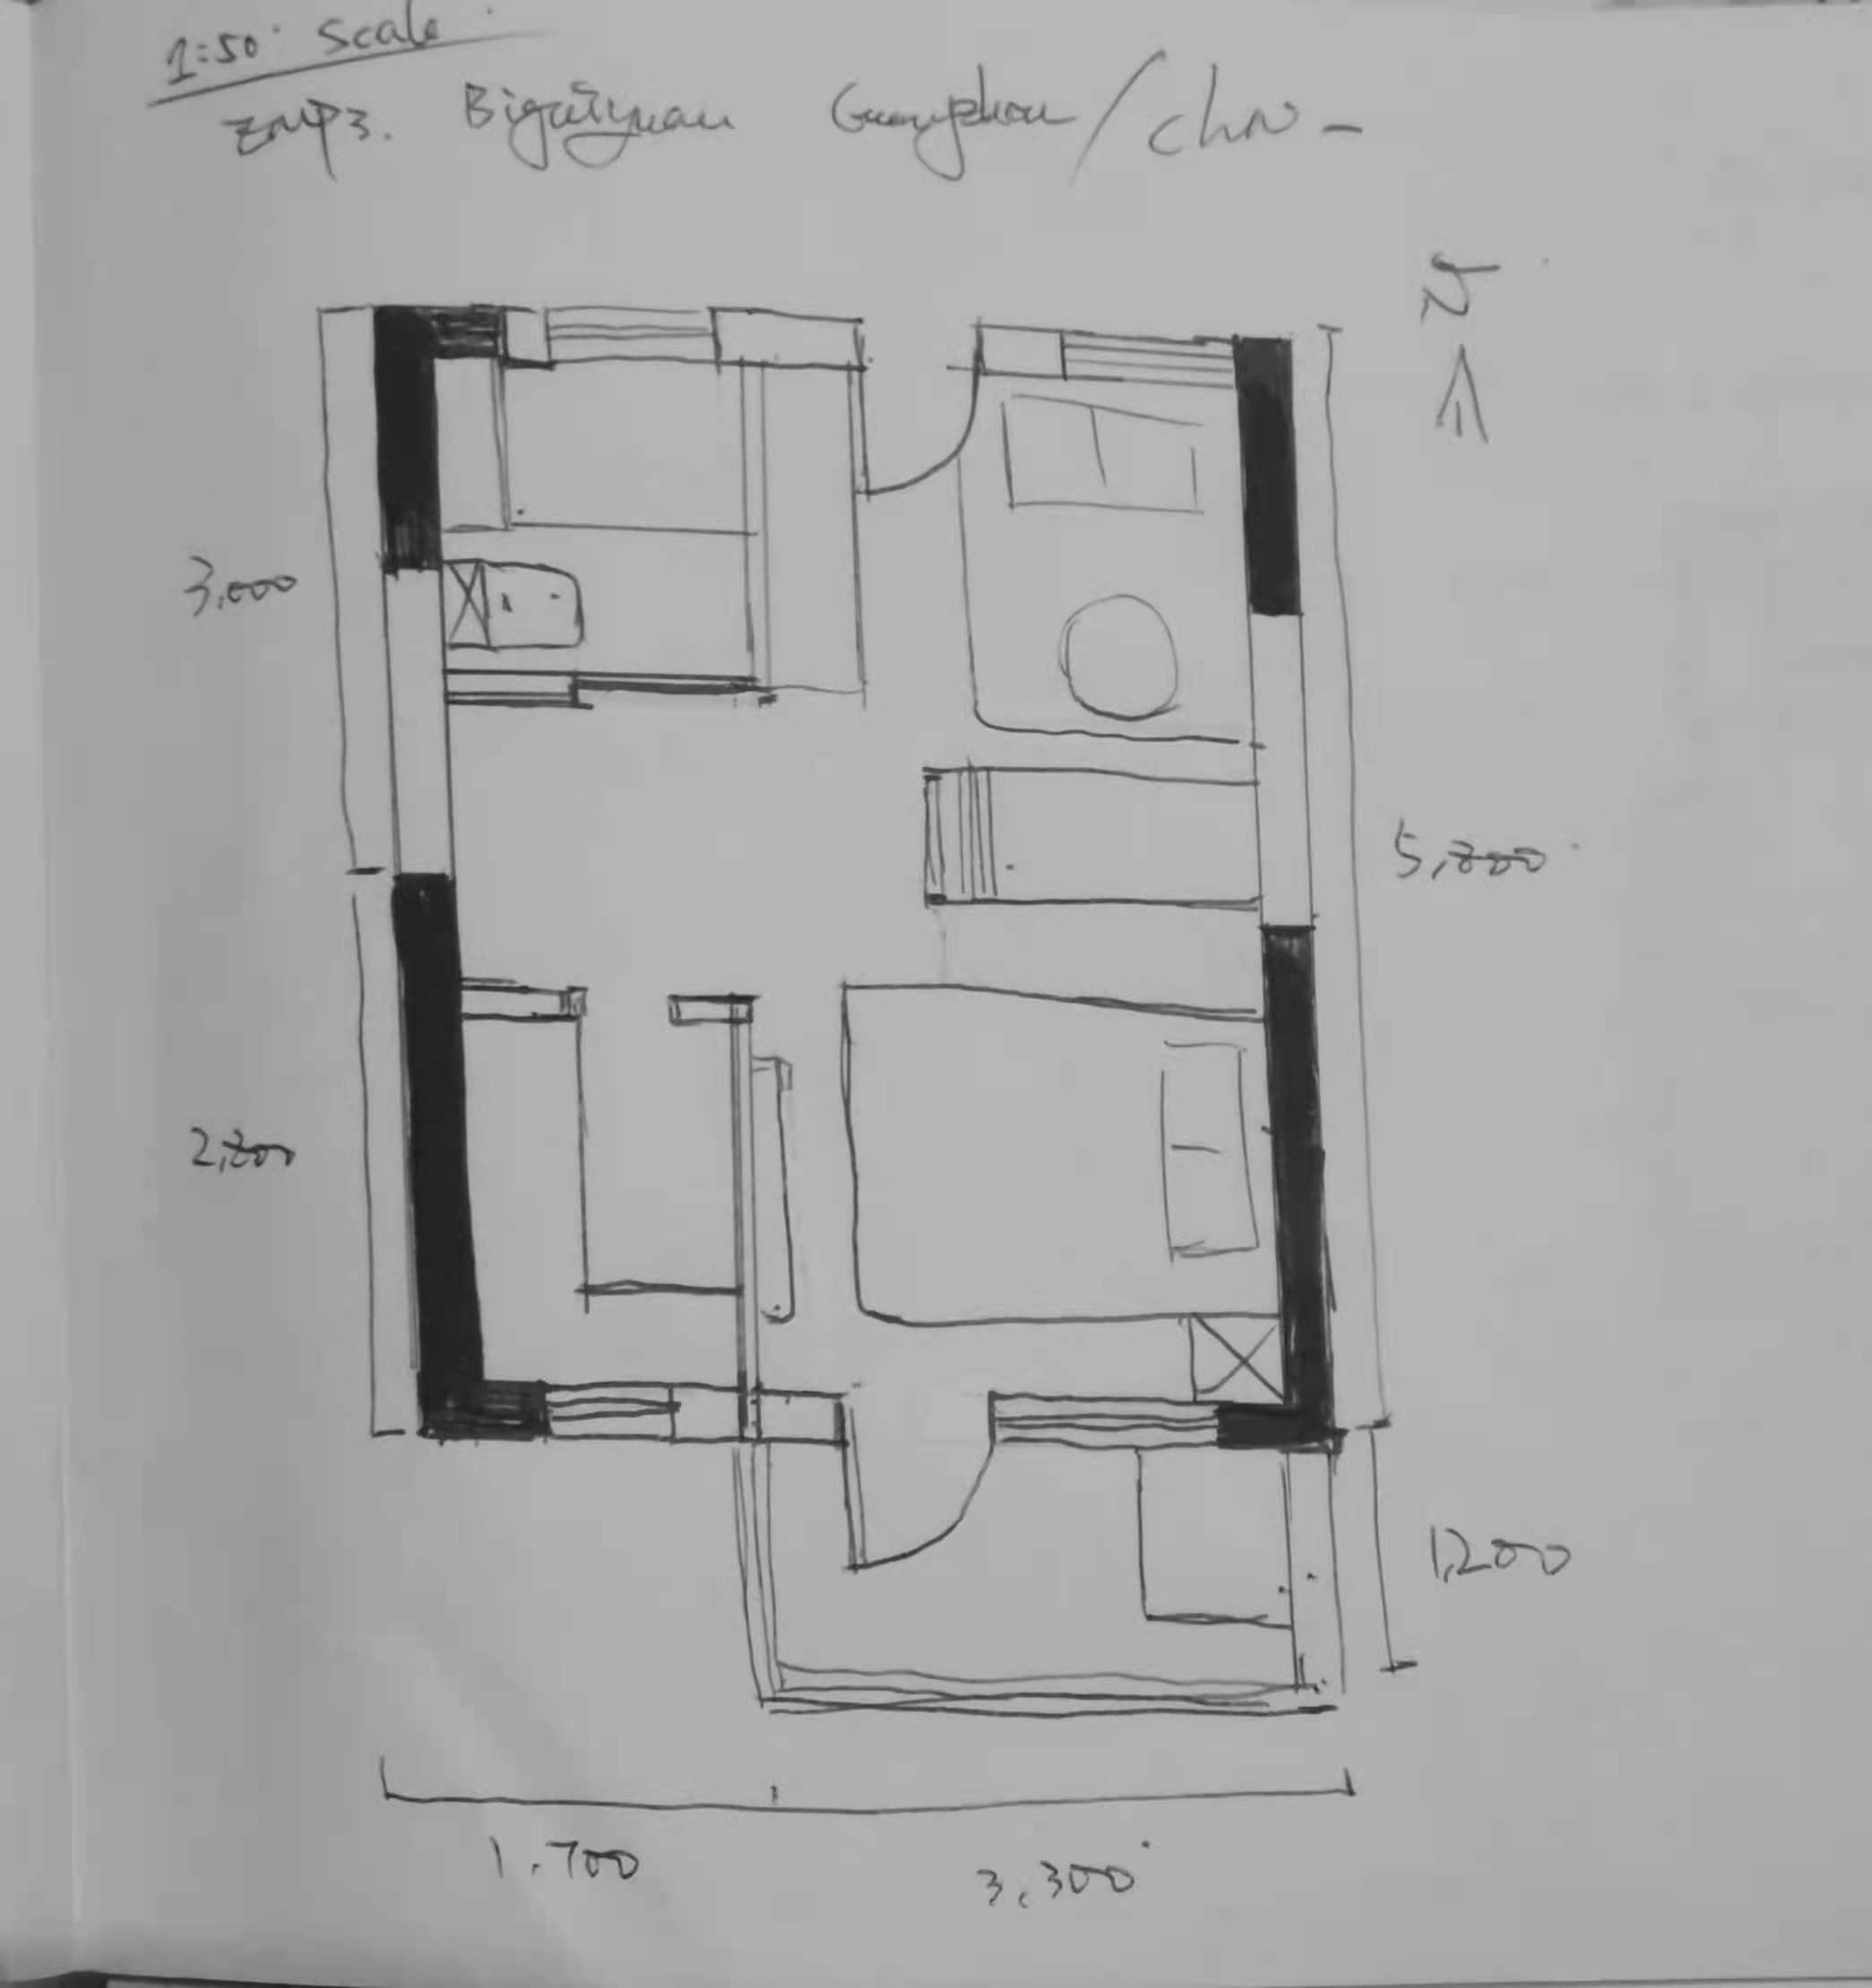 1:50 Scale
EMP3. Biguiyuan Guangzhou / CHN -
N
3,000
5,800
2,800
1,200
1.700 3,300